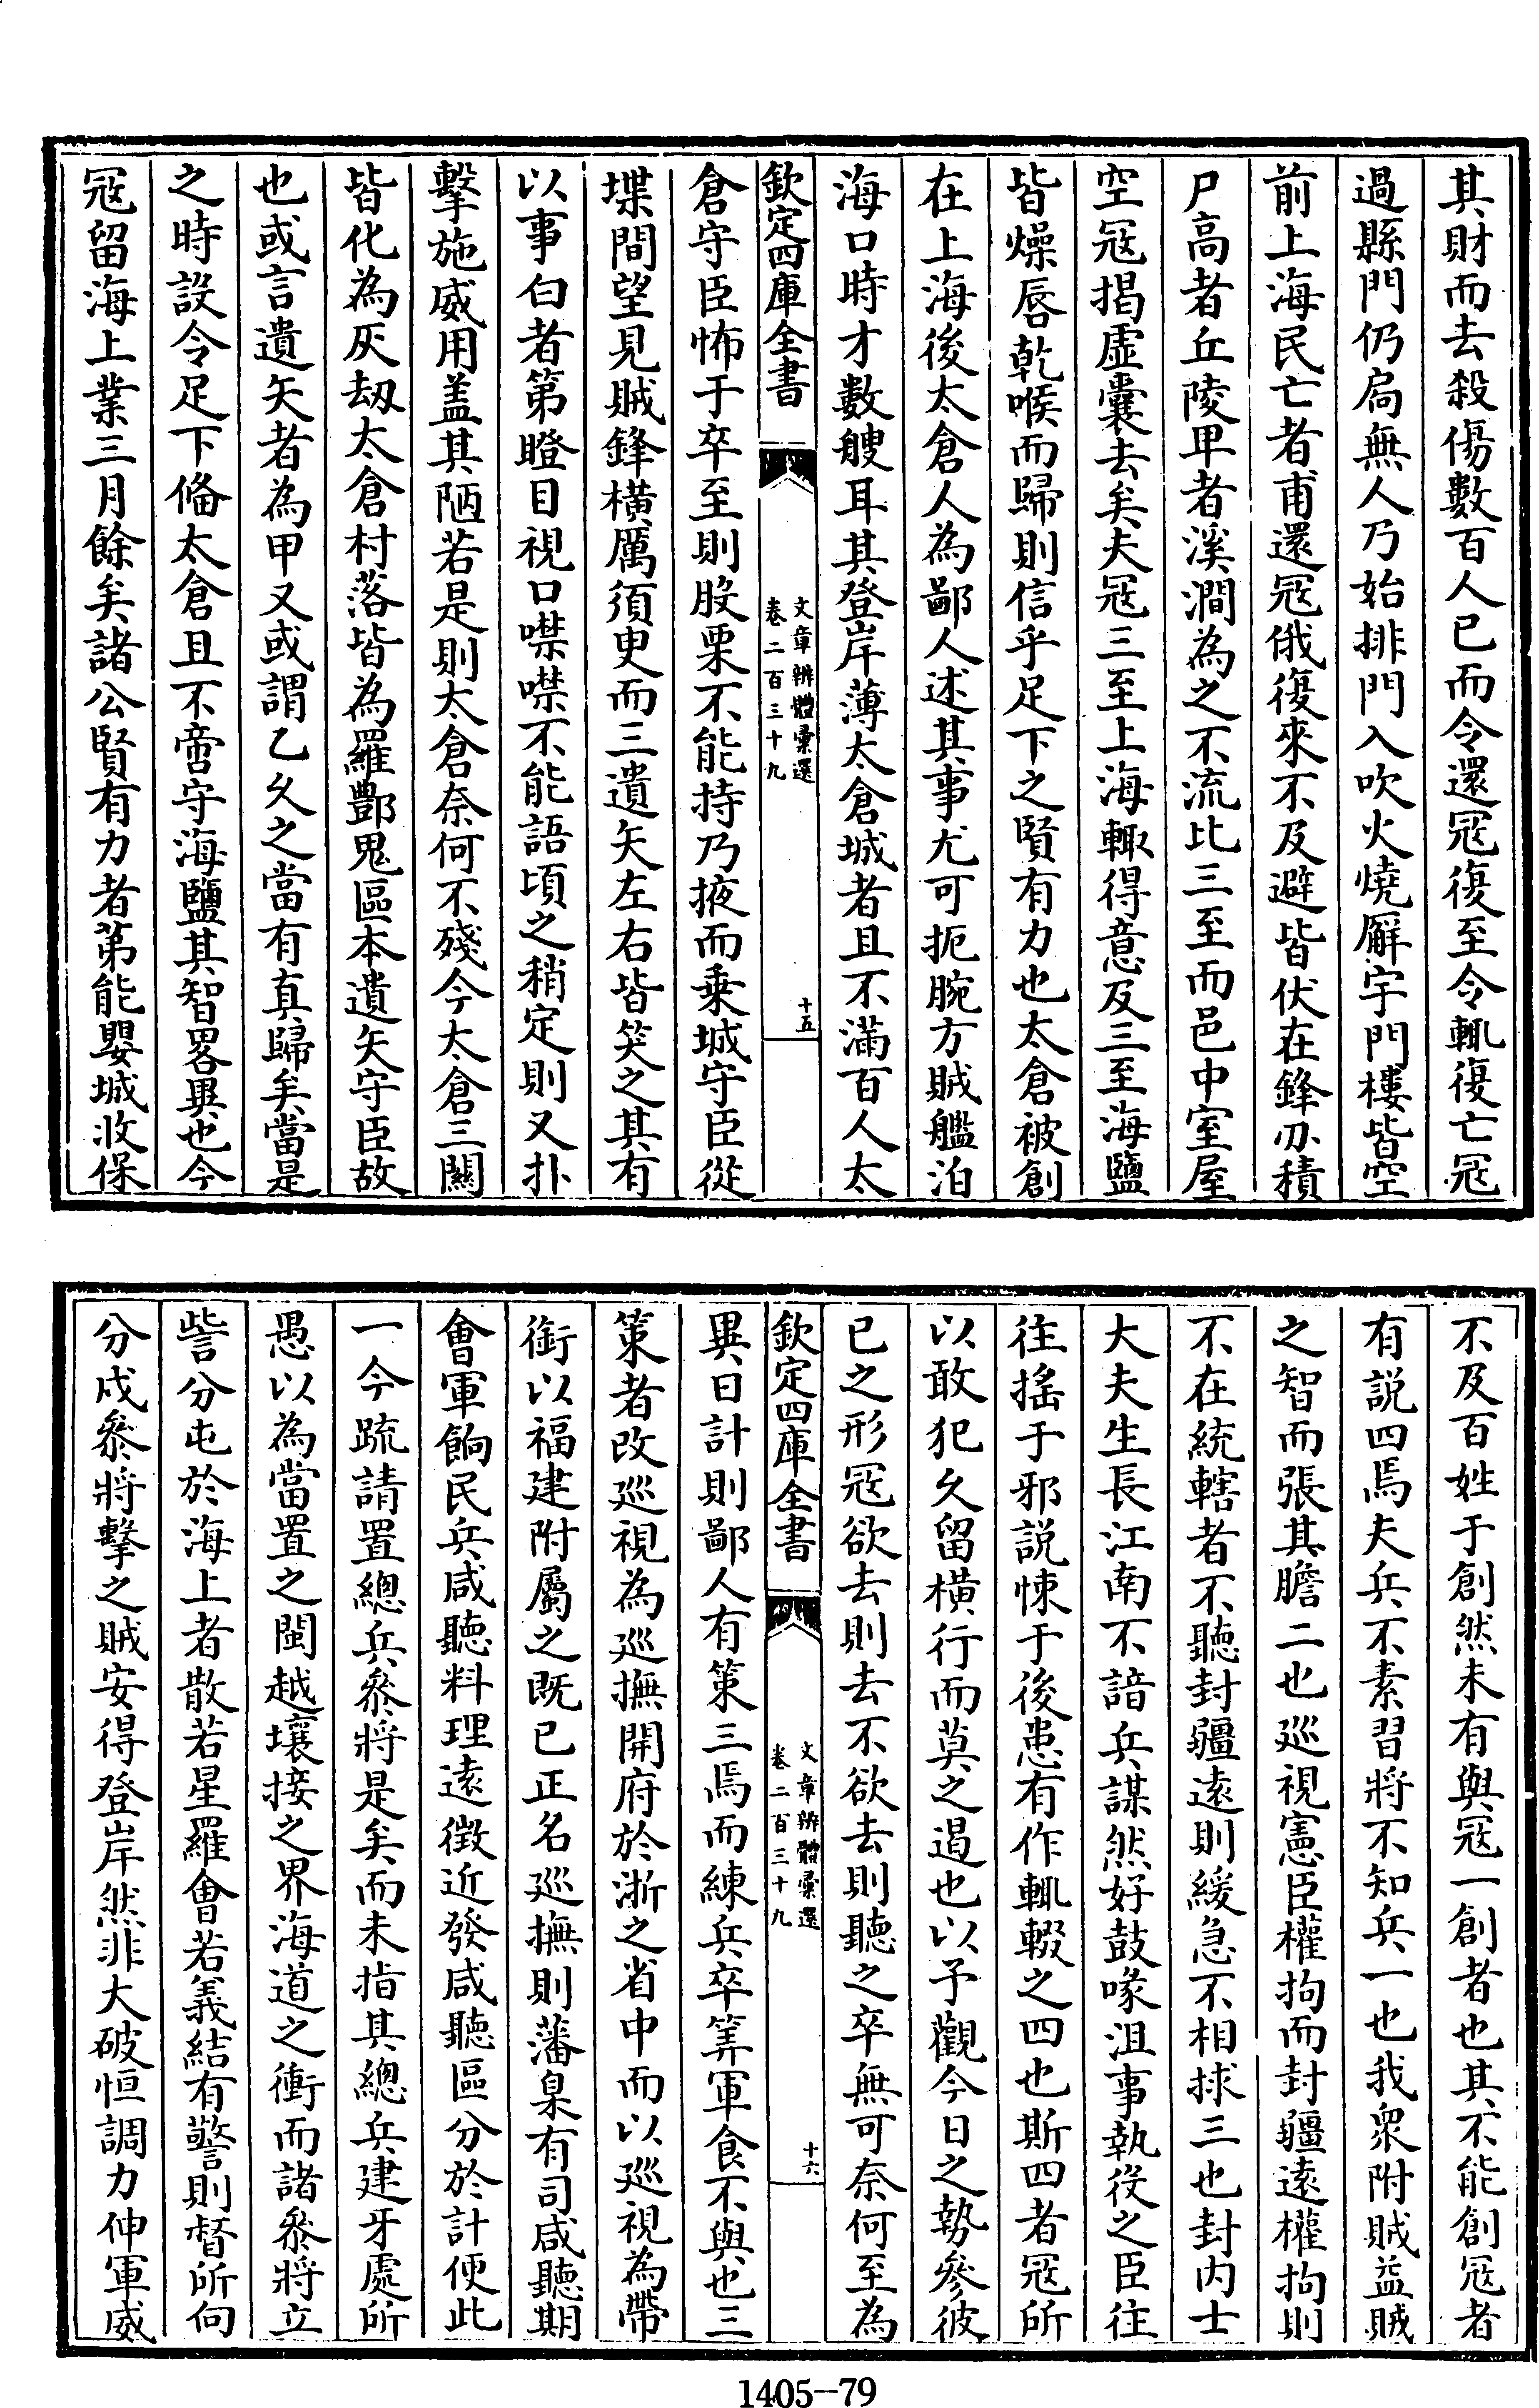 其財而去殺傷數百人已而令還冦復至令輒復亡冦
過縣門仍扄無人乃始排門入吹火燒廨宇門樓皆空
前上海民亡者甫還冦俄復來不及避皆伏在鋒刃積
尸高者丘陵卑者溪澗為之不流比三至而邑中室屋
空冦揭虛囊去矣夫冦三至上海輙得意及三至海鹽
皆燥唇乾喉而歸則信乎足下之賢有力也太倉被創
在上海後太倉人為鄙人述其事尤可扼腕方賊艦泊
海口時才數艘耳其登岸薄太倉城者且不滿百人太
欽定四庫全書
文章辨體彙選
卷二百三十九
十五
倉守臣怖于卒至則股栗不能持乃掖而乗城守臣從
堞間望見賊鋒橫厲須更而三遺矢左右皆笑之其有
以事白者第瞪目視口噤噤不能語頃之稍定則又扑
擊施威用盖其陋若是則太倉奈何不殘今太倉三關
皆化為灰刼太倉村落皆為羅酆鬼區本遺矢守臣故
也或言遺矢者為甲又或謂乙乆之當有真歸矣當是
之時設令足下僃太倉且不啻守海鹽其智畧異也今
冦留海上業三月餘矣諸公賢有力者第能嬰城收保
不及百姓于創然未有與冦一創者也其不能創冦者
有説四焉夫兵不素習將不知兵一也我衆附賊益賊
之智而張其膽二也巡視憲臣權拘而封疆遠權拘則
不在統轄者不聽封疆遠則緩急不相捄三也封内士
大夫生長江南不諳兵謀然好鼓喙沮事執役之臣往
往搖于邪説悚于後患有作輒輟之四也斯四者冦所
以敢犯乆留橫行而莫之遏也以予觀今日之勢參彼
已之形冦欲去則去不欲去則聽之卒無可奈何至為
欽定四庫全書
文章辨體彙選
卷二百三十九
十六
異日計則鄙人有策三焉而練兵卒筭軍食不與也三
策者改巡視為巡撫開府於浙之省中而以巡視為帶
銜以福建附屬之既已正名巡撫則藩臬有司咸聽期
會軍餉民兵咸聽料理遠徴近發咸聽區分於計便此
一今疏請置總兵叅將是矣而未指其總兵建牙處所
愚以為當置之閩越壤接之界海道之衝而諸叅將立
訾分屯於海上者散若星羅會若義結有警則督所向
分戍叅將擊之賊安得登岸然非大破恒調力伸軍威
1405-79